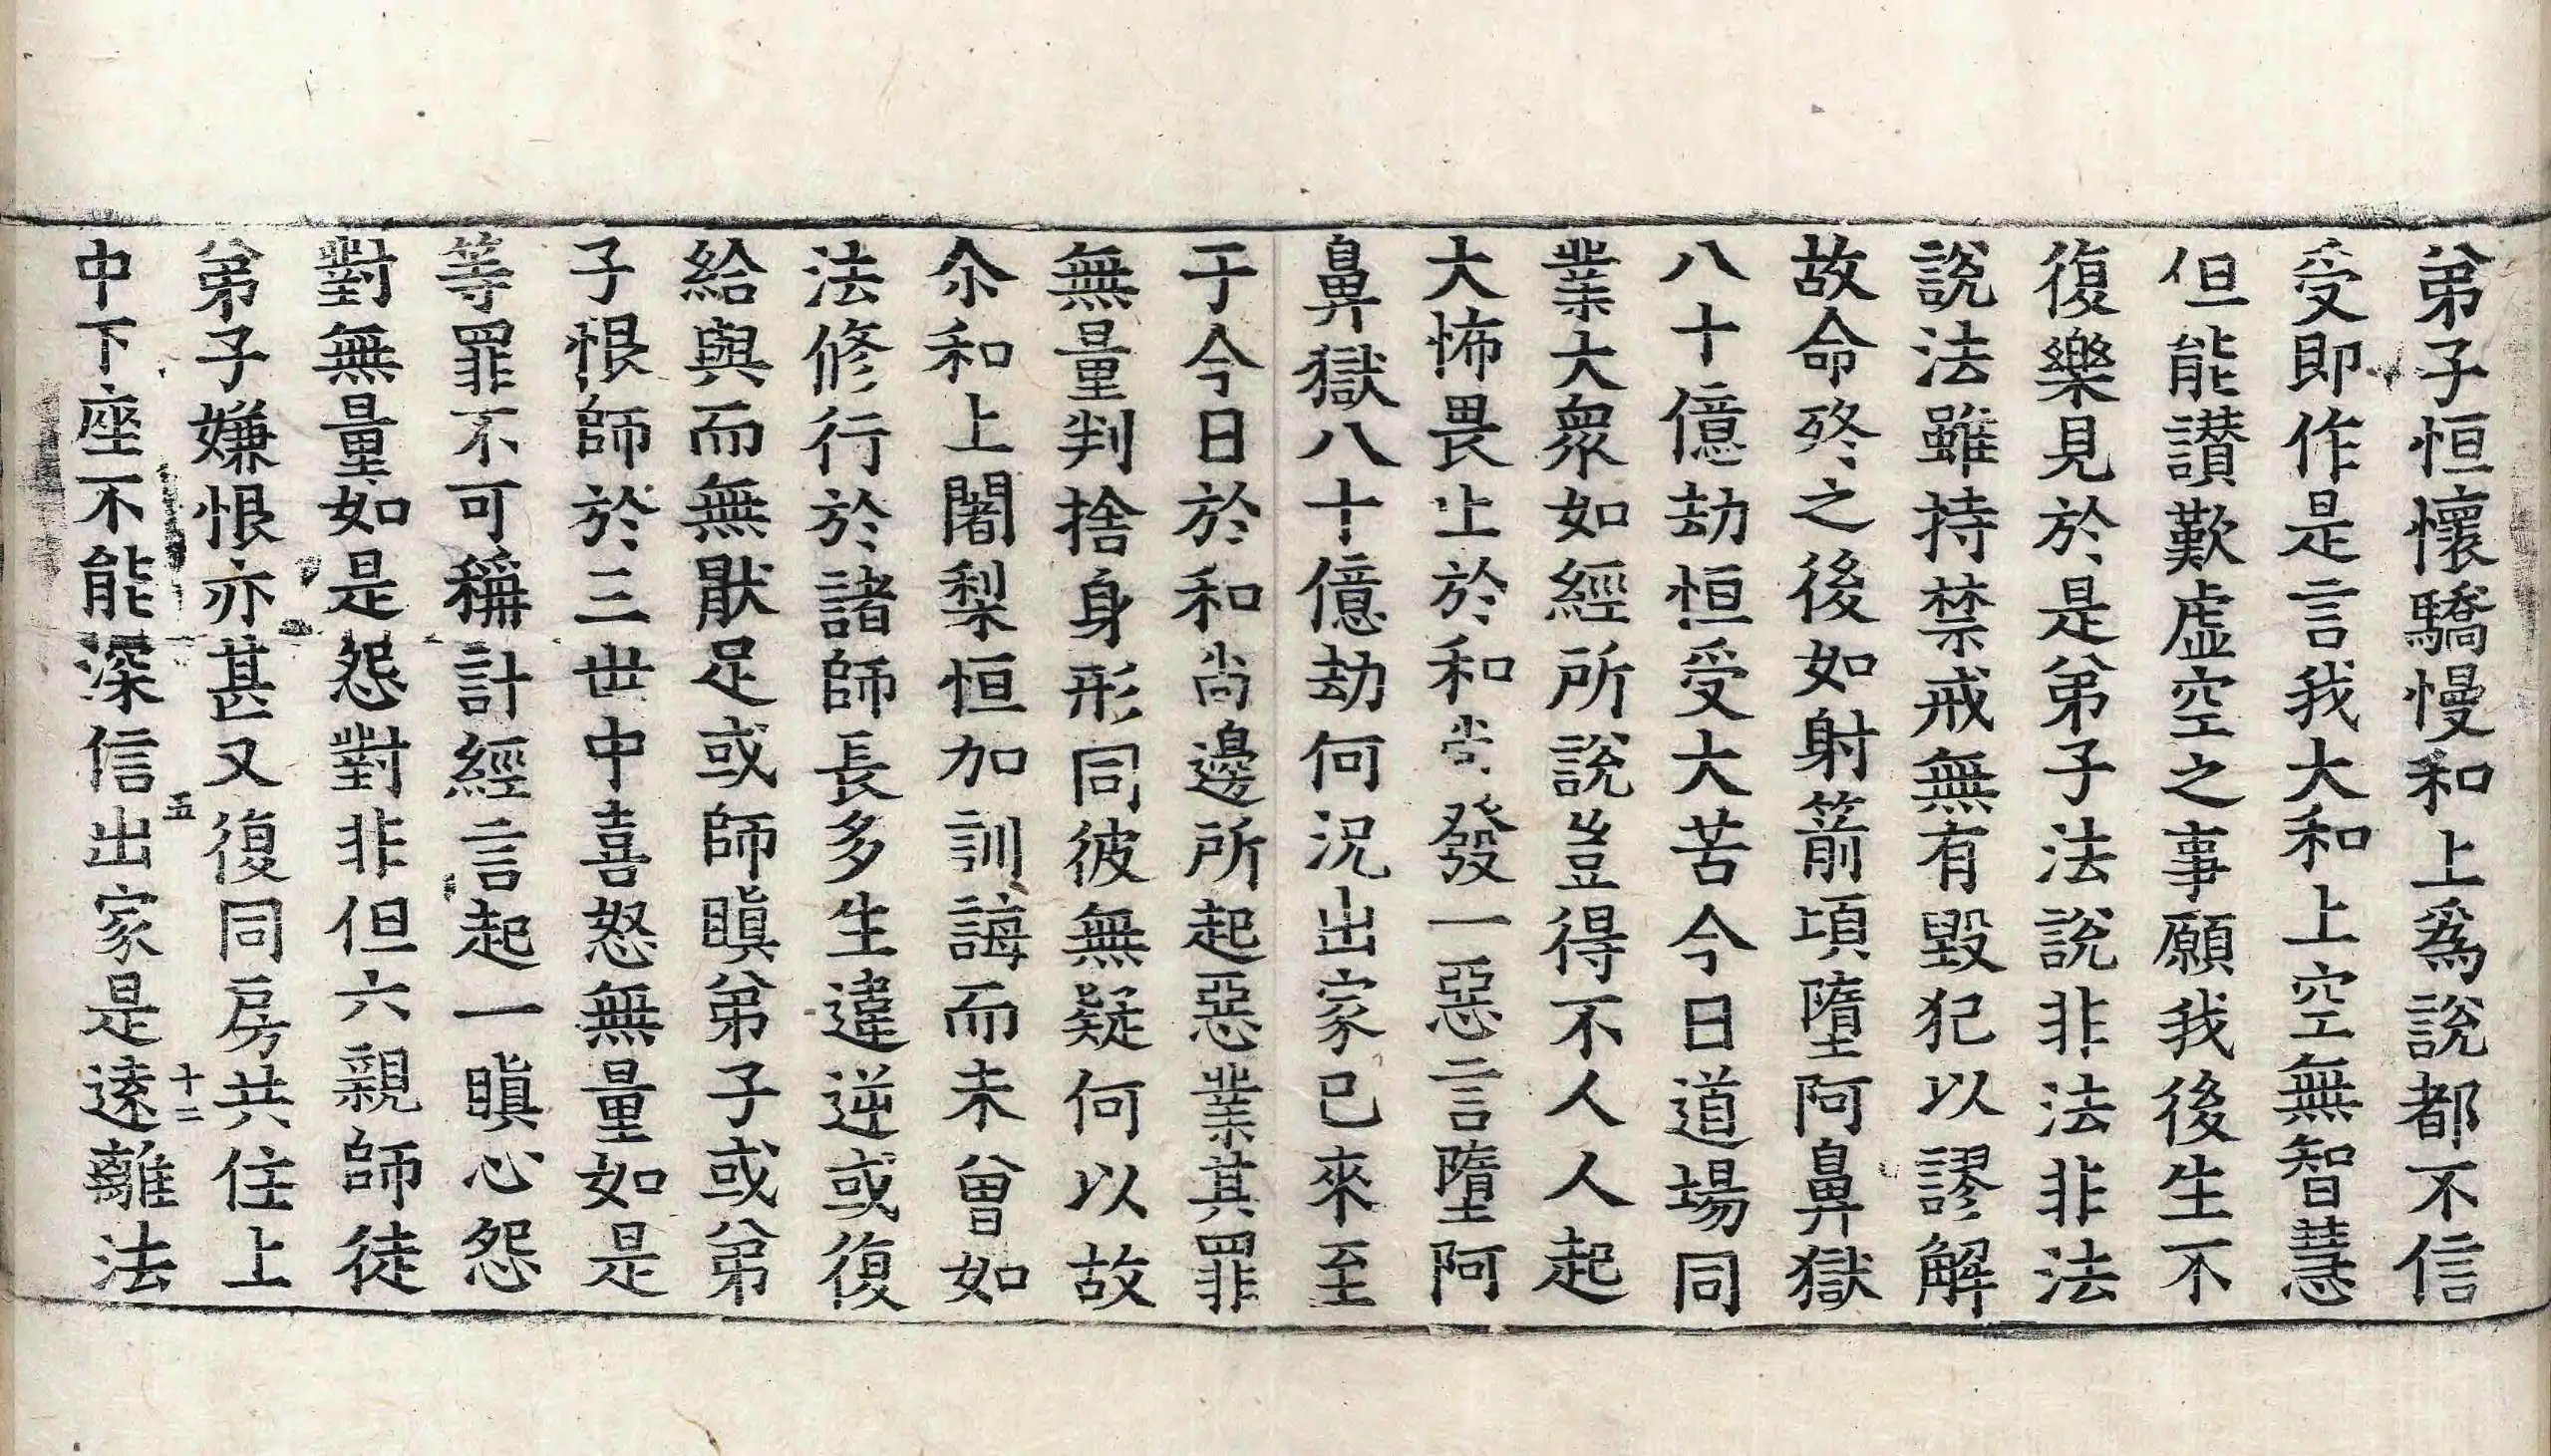 弟子恒懷驕慢和上爲說都不信
受即作是言我大和上空無智慧
但能讃歎虛空之事願我後生不
復樂見於是弟子法說非法非法
說法雖持禁戒無有毀犯以謬解
故命終之後如射箭頃墮阿鼻獄
八十億劫恒受大苦今日道場同
業大衆如經所說豈得不人人起
大怖畏止於和尚發一惡言墮阿
鼻獄八十億劫何況出家已來至
于今日於和尚邊所起惡業其罪
無量判捨身形同彼無疑何以故
尒和上闍梨恒加訓誨而未曾如
法修行於諸師長多生違逆或復
給與而無猒足或師瞋弟子或弟
子恨師於三世中喜怒無量如是
等罪不可稱計經言起一瞋心怨
對無量如是怨對非但六親師徒
弟子嫌恨亦甚又復同房共住上
五 十二
中下座不能深信出家是遠離法